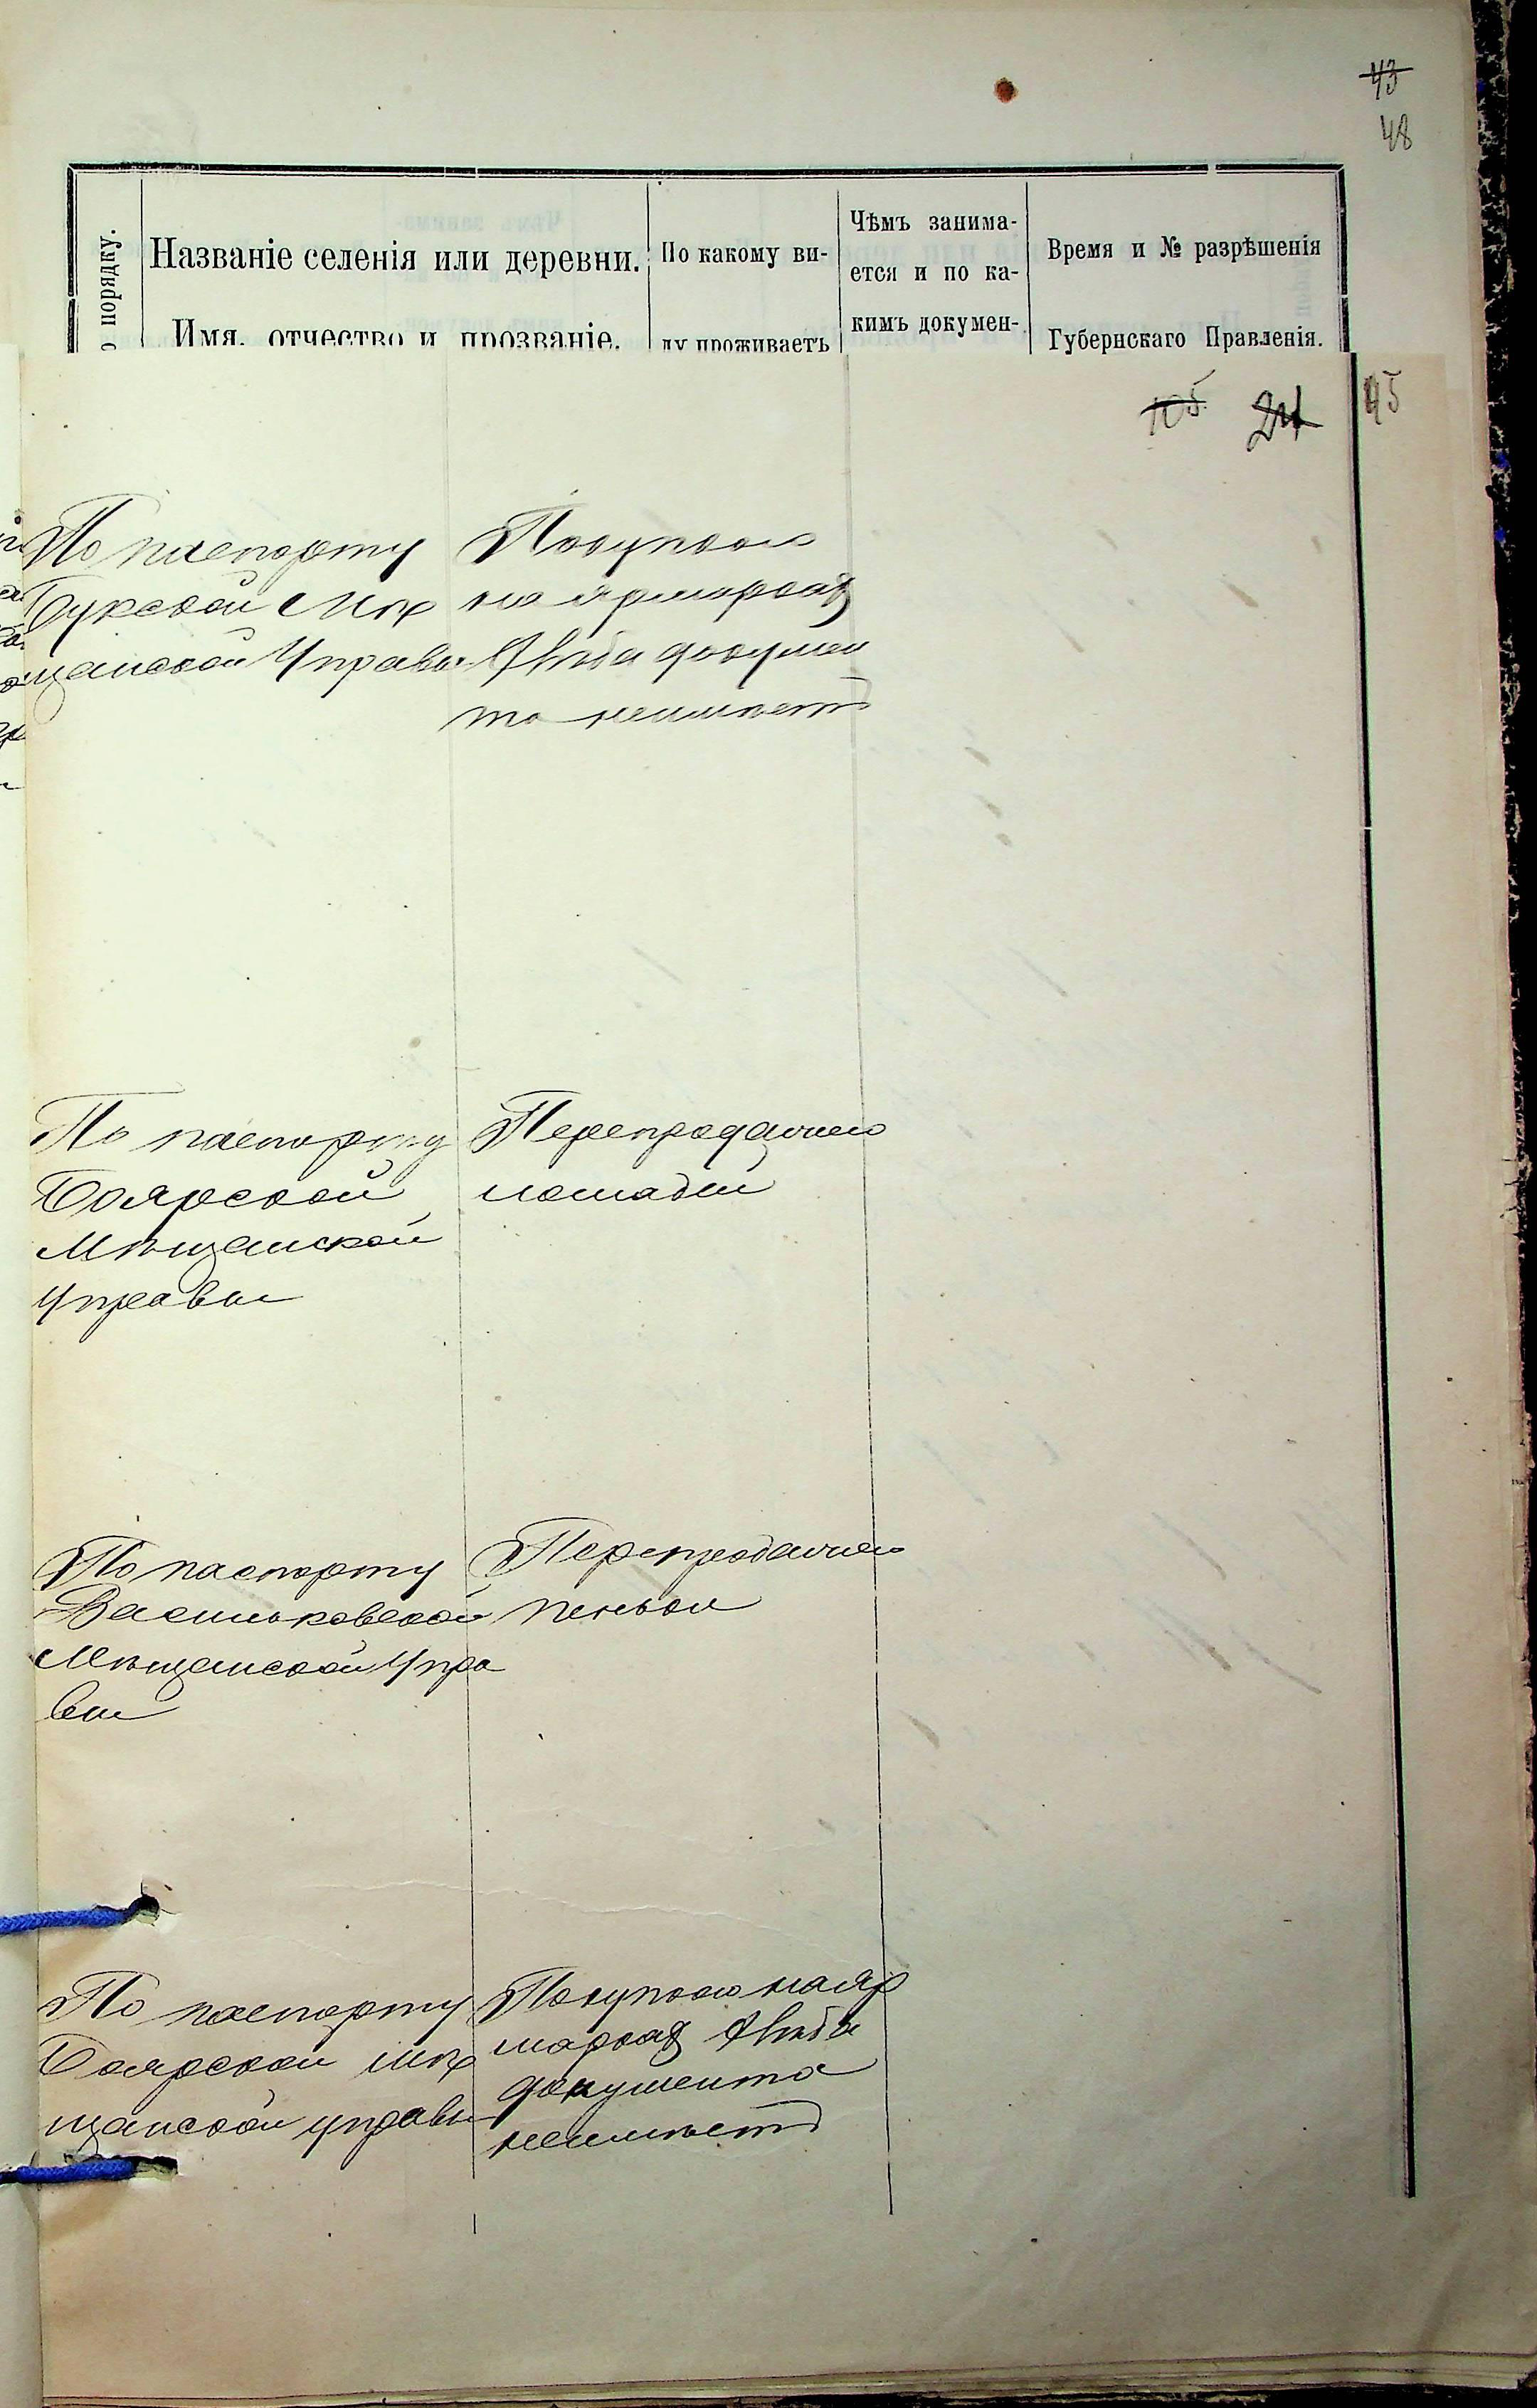 43
48
порядку.
Названіе селенія или деревни.
Имя, отчество и прозваніе.
По какому ви-
ду проживаетъ
Чѣмъ занима-
ется и по ка-
кимъ докумен-
Время и № разрѣшенія
Губернскаго Правленія.
105 24 45
По паспорту
Букской Мѣ
щанской Управы
Покупкою
на ярмаркахъ
докумен
та неимѣетъ
По паспорту
Боярской
Мѣщанской
Управы
Перепродажею
лошадей
По паспорту
Васильковской
Мѣщанской Упра
вы
Перепродажею
пеньки
По паспорту
Боярской Мѣ
щанской управы
Покупкою на яр
маркахъ
документа
неимѣетъ